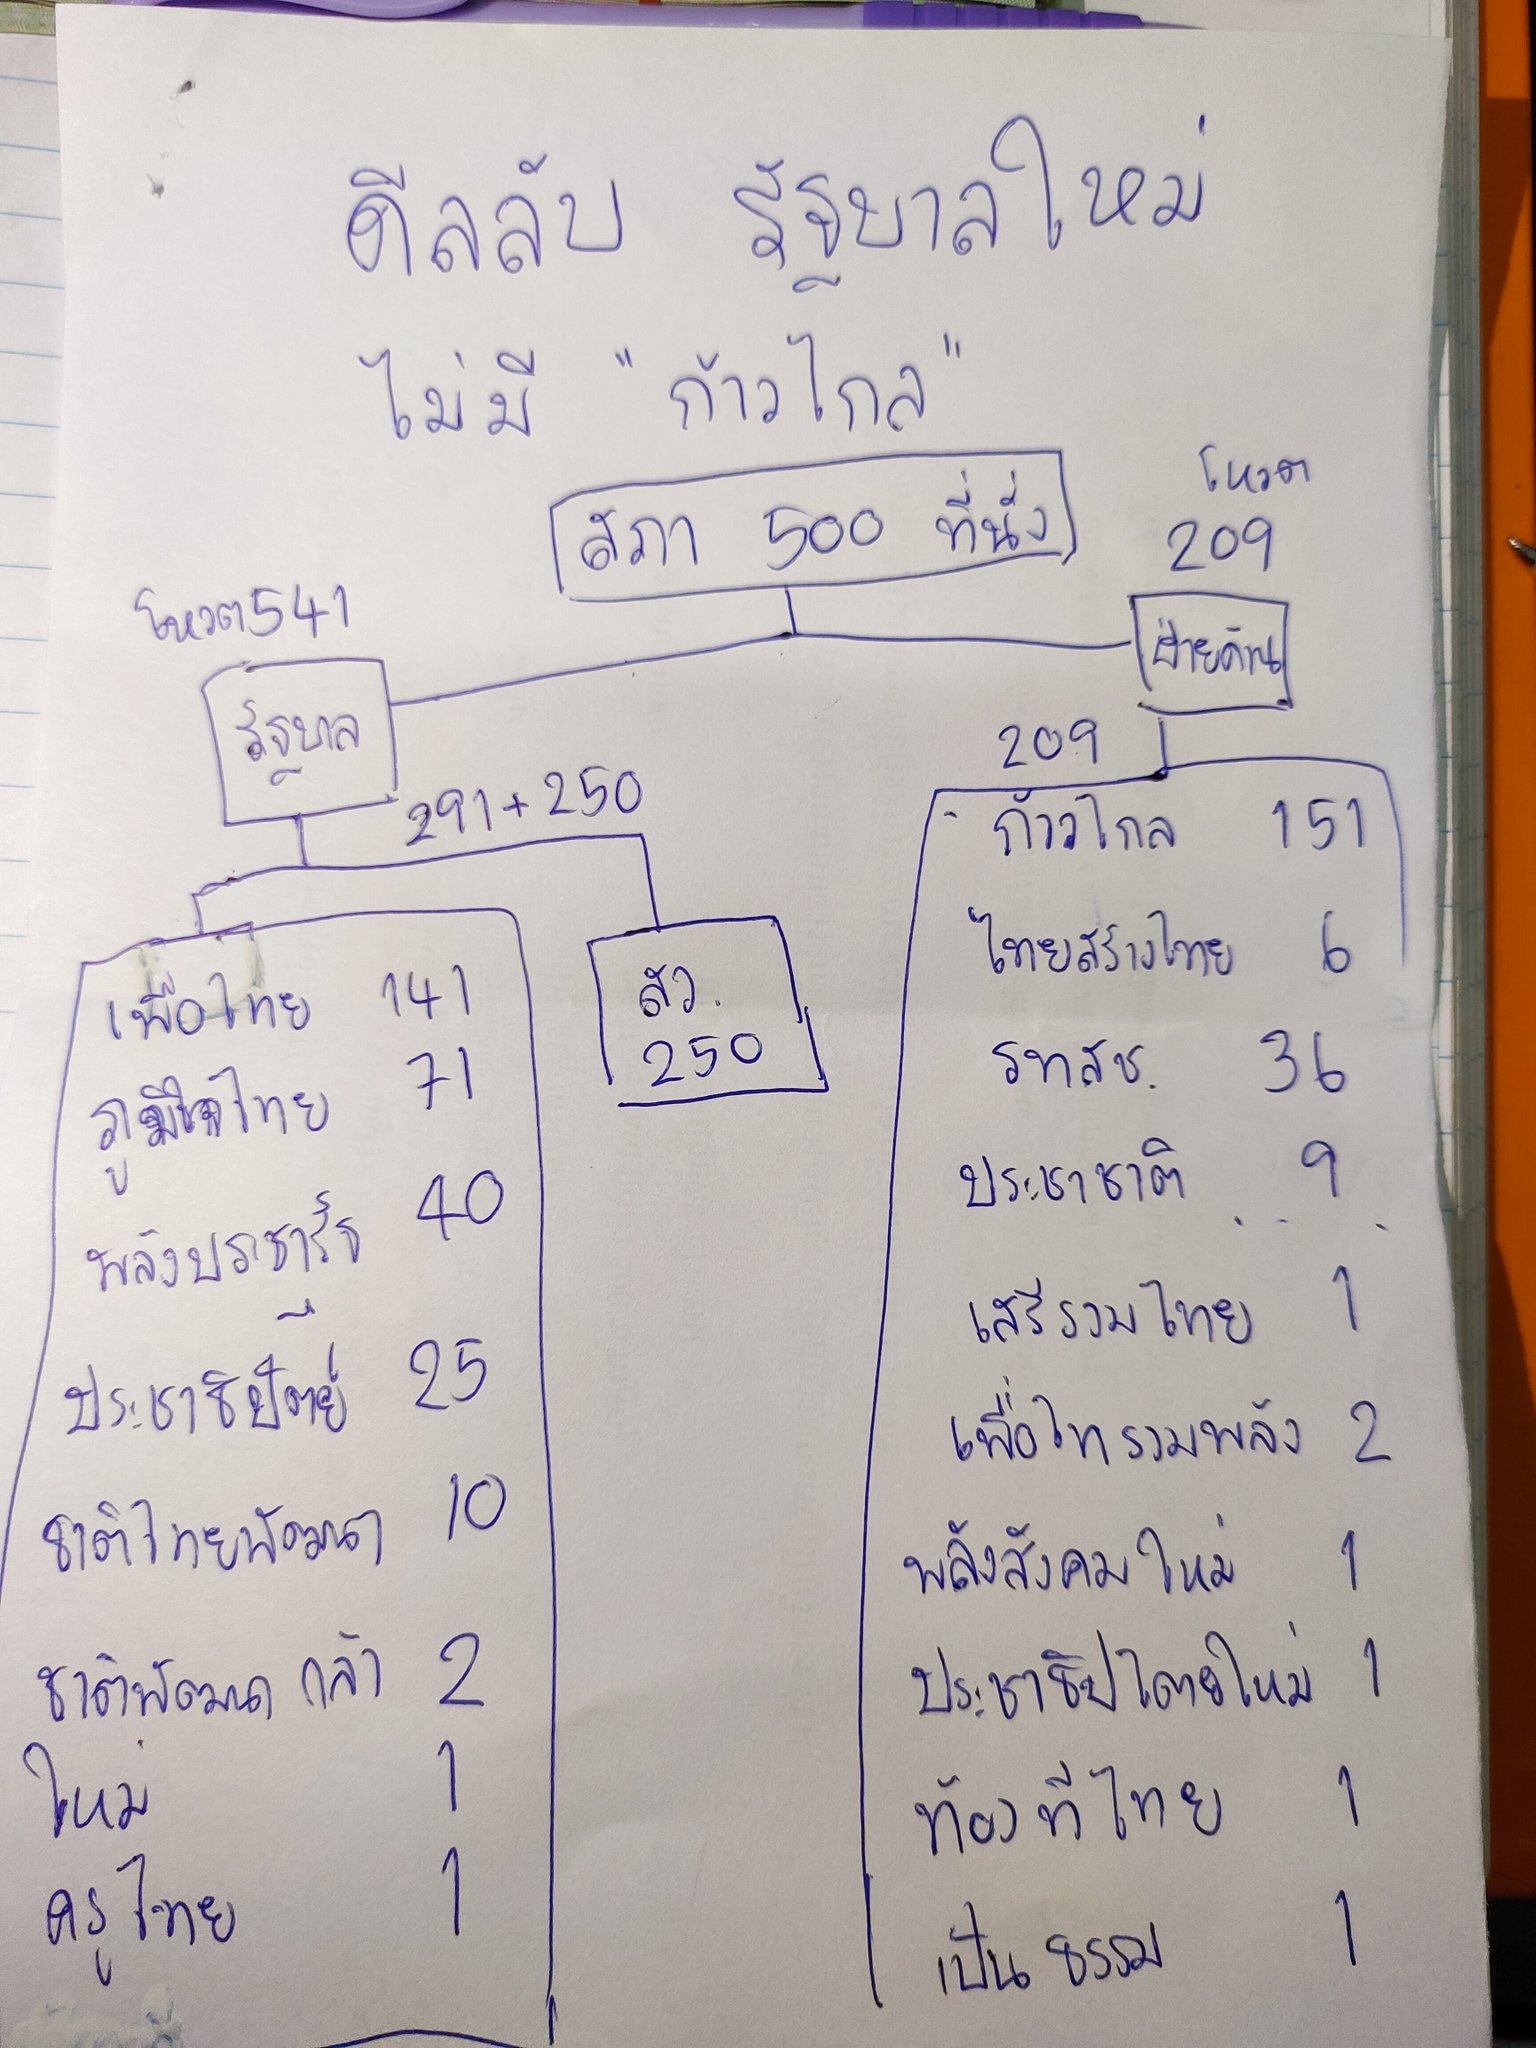 ดีลลับ รัฐบาลใหม่
ไม่มี "ก้าวไกล"
สภา 500 ที่นั่ง
โหวต
209
โหวต 541
ฝ่ายค้าน
รัฐบาล
291 + 250
209
เพื่อไทย 141
ภูมิใจไทย 71
พลังประชารัฐ 40
ประชาธิปัตย์ 25
ชาติไทยพัฒนา 10
ชาติพัฒนา กล้า 2
ใหม่ 1
ครูไทย 1
สว.
250
ก้าวไกล 151
ไทยสร้างไทย 6
รทสช. 36
ประชาชาติ 9
เสรีรวมไทย 1
เพื่อไทรวมพลัง 2
พลังสังคมใหม่ 1
ประชาธิปไตยใหม่ 1
ท้องที่ไทย 1
เป็นธรรม 1